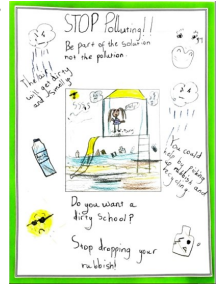 STOP Polluting!!
Be part of the solution
not the polution.
The
will get dirty
and smelly
You could
help by picking
up rubbish and
recycling
Do you want a
dirty school?
Stop dropping your
rubbish!